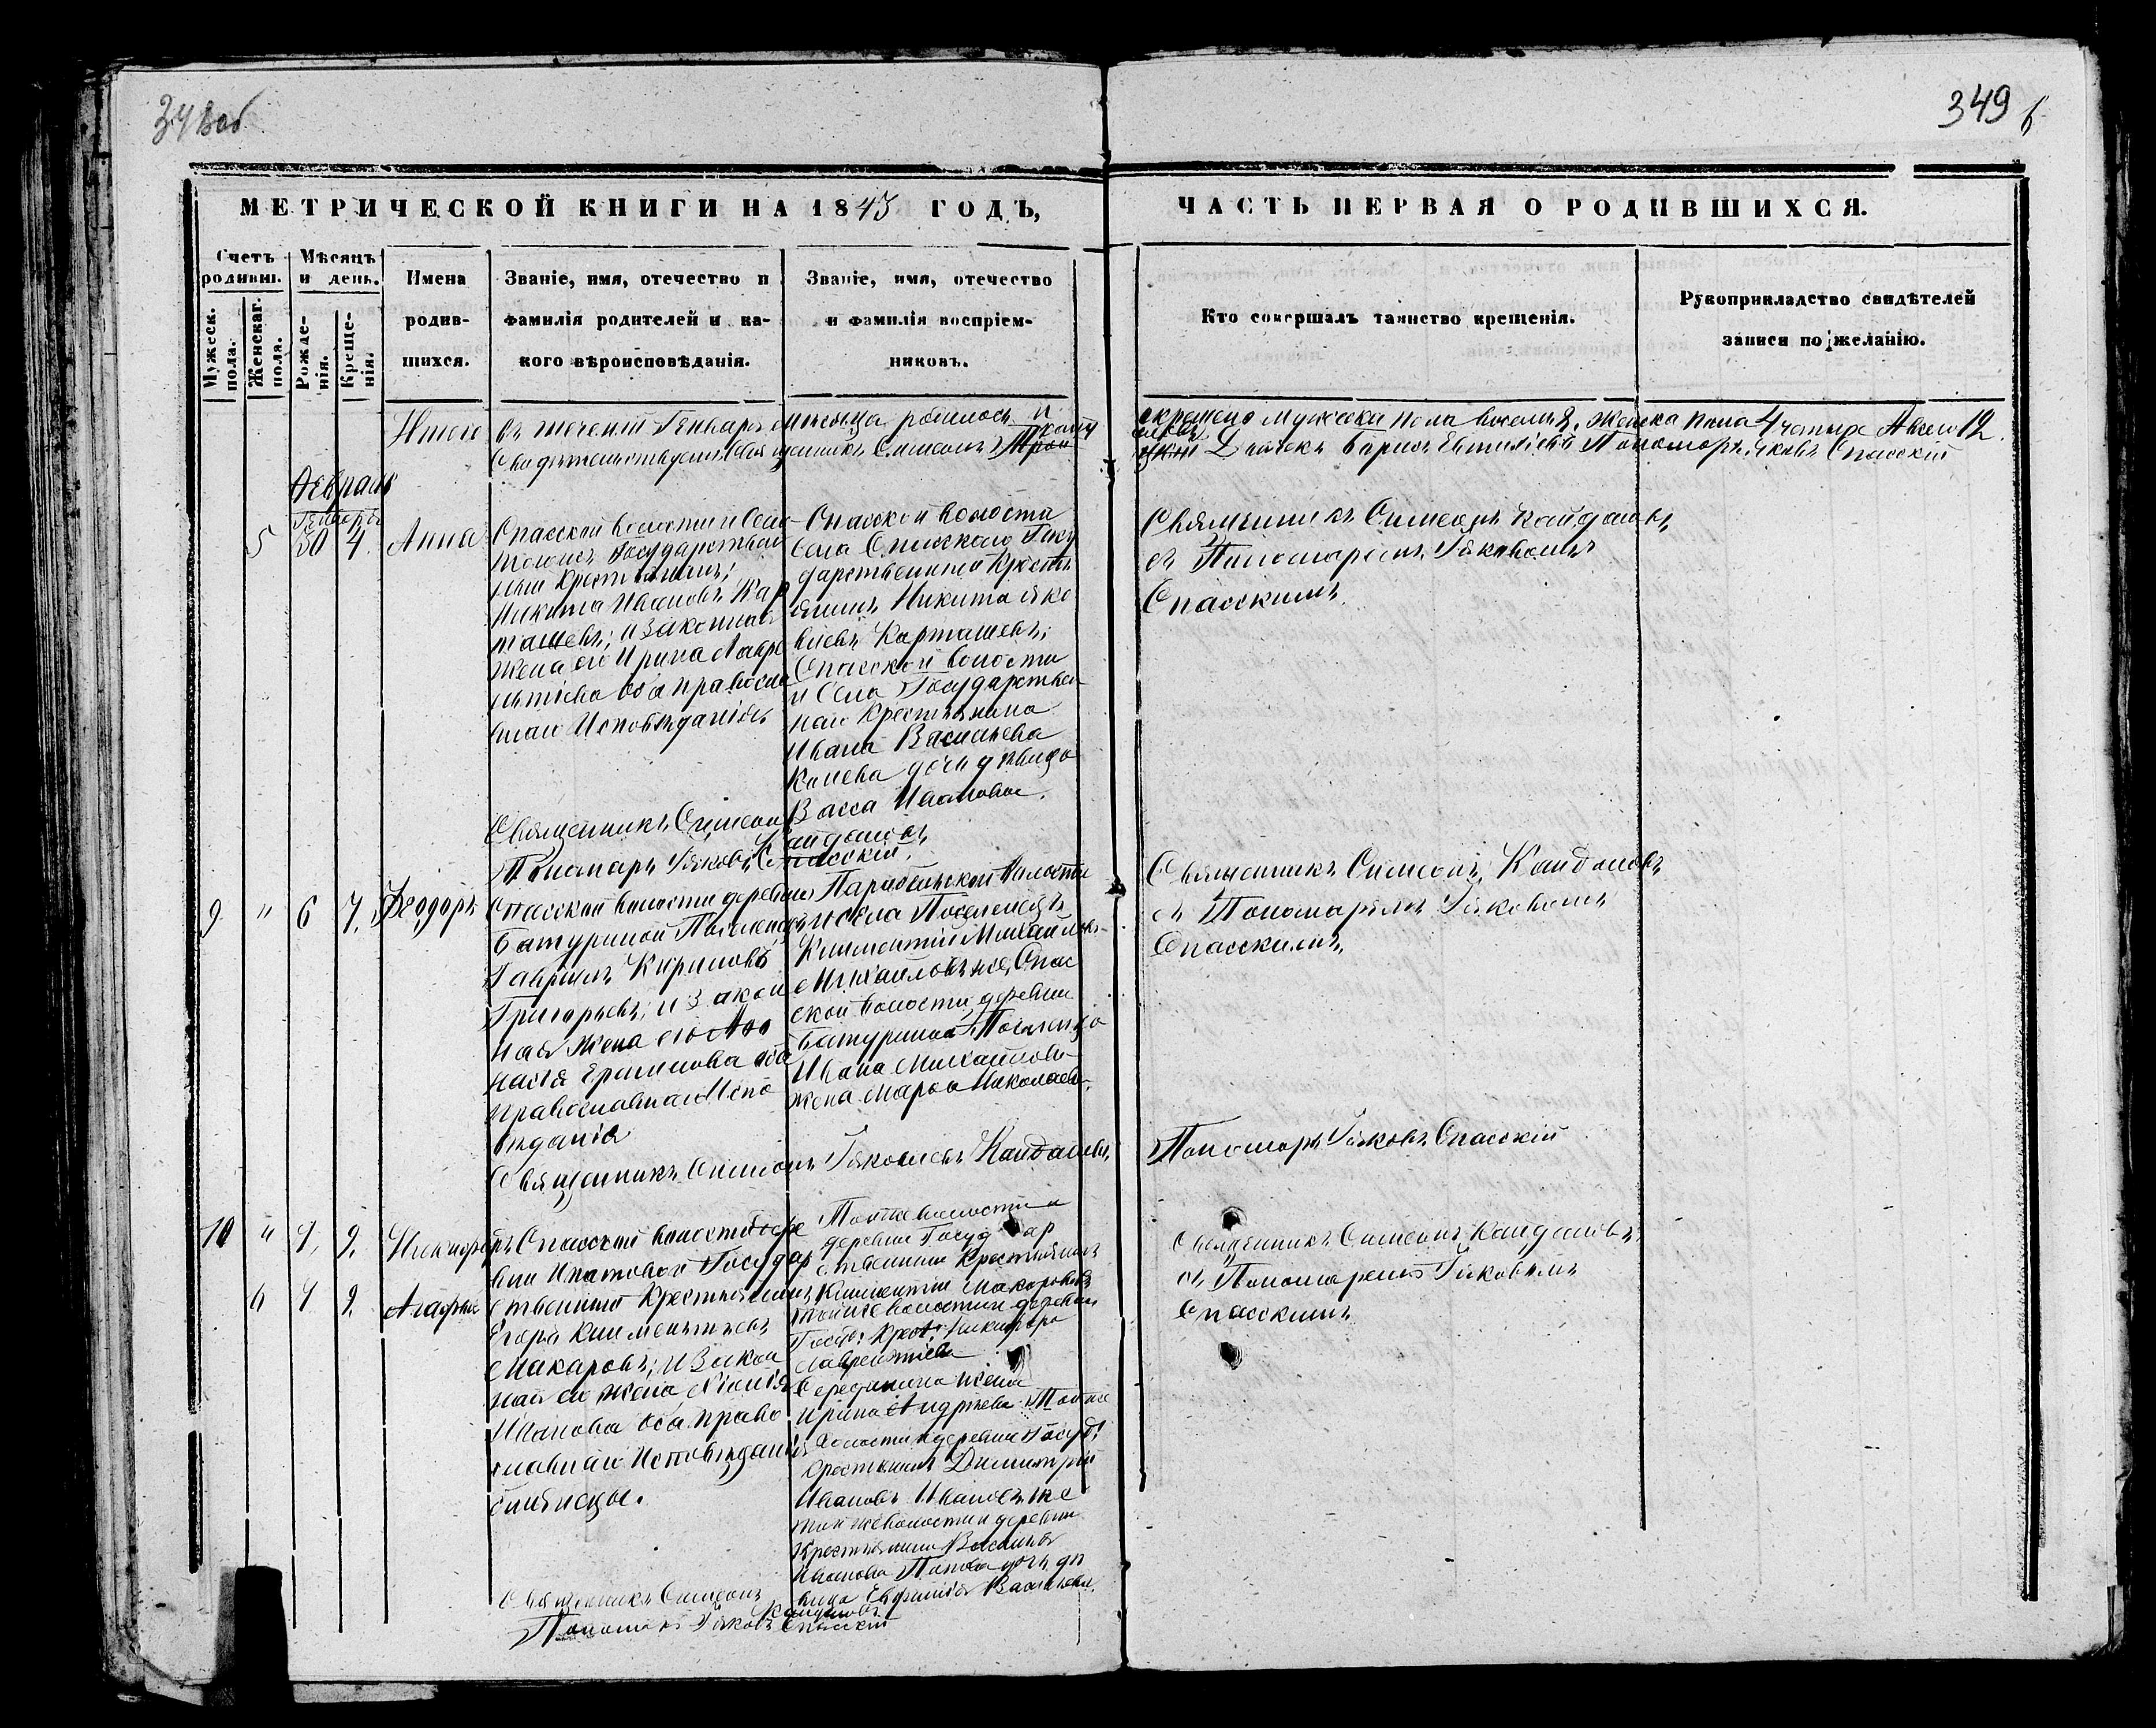 349
6
МЕТРИЧЕСКОЙ КНИГИ НА 1843 ГОДЪ,
ЧАСТЬ ПЕРВАЯ О РОДИВШИХСЯ.
Счетъ родивш.
Мужеск. пола.
Женскаг. поля.
Мѣсяцъ и день.
Рожденія.
Крещенія.
Имена
родив-
шихся.
Званіе, имя, отечество и
фамилія родителей и ка-
кого вѣроисповѣданія.
Званіе, имя, отечество
и фамилія воспріем-
никовъ.
Кто совершалъ таинство крещенія.
Рукоприкладство свидѣтелей
записи по желанію.
Итого въ теченіи Генваря мѣсяца родилось и
крещено мужеска пола восемь 8. женска пола 4 четыре А всего 12.
Свидѣтельствуемъ Священникъ Симеонъ
Пономарь Яковъ Спасскій
Февраль
Генваря
5 30 4. Анна
Спасской волости и Села
Государствен
ный Крестьянинъ;
Никита Ивановъ Кар
ташевъ; и законная
жена его Ирина Лавре
нтіева оба православ
наго Исповѣданія
Спасской волости
Села Спасскаго Госу
дарственный Кресть
янинъ Никита Яко
влевъ Карташевъ;
Спасской волости
и Села Государствен
наго Крестьянина
Ивана Васильева
дочь дѣвица
Васса Иванова.
Священникъ Симеонъ Кайдановъ,
съ Пономаремъ Яковомъ
Спасскимъ
Священникъ Симеонъ
Кайдановъ
Пономарь Яковъ Спасскій.
9 " 6 7. Феодоръ
Спасской волости деревни
Батуриной
Гавріилъ Кириловъ
Григорьевъ; и закон
ная жена его Ана
стасія оба
православнаго Испо
вѣданія
волости
и села Поселенецъ
Климентій Михайловъ
Михайловъ же, Спас
ской волости деревни
Батуриной Поселенца
Ивана Михайлова
жена Марѳа Николаева.
Священникъ Симеонъ Кайдановъ
съ Пономаремъ Яковомъ
Спасскимъ,
Священникъ Симеонъ Яковлевъ Кайдановъ,
Пономарь Яковъ Спасскій
10 " 9. Никифоръ
6 9. Агафья
Спасской волости дере
вни Ипатовой Государ
ственный Крестьянинъ
Егоръ Климентьевъ
Макаровъ; и закон
ная его жена
Иванова оба право
славнаго Исповѣданія
близнецы.
Тойже волости и
деревни Государ
ственный Крестьянинъ
Климентій Макаровъ
тойже волости и деревни
Госуд: Крест: Никифора
Лаврентіева
Середкина жена
Ирина Андреева Тойже
волости и деревни Госуд:
Крестьянинъ Димитрій
Ивановъ Ивановъ же
тойже волости и деревни
Крестьянина Василья
Иванова Попова дочь дѣ
вица Евфимія Васильева.
Священникъ Симеонъ Кайдановъ
съ Пономаремъ Яковымъ
Спасскимъ
Священникъ Симеонъ
Кайдановъ
Пономарь Яковъ Спасскій